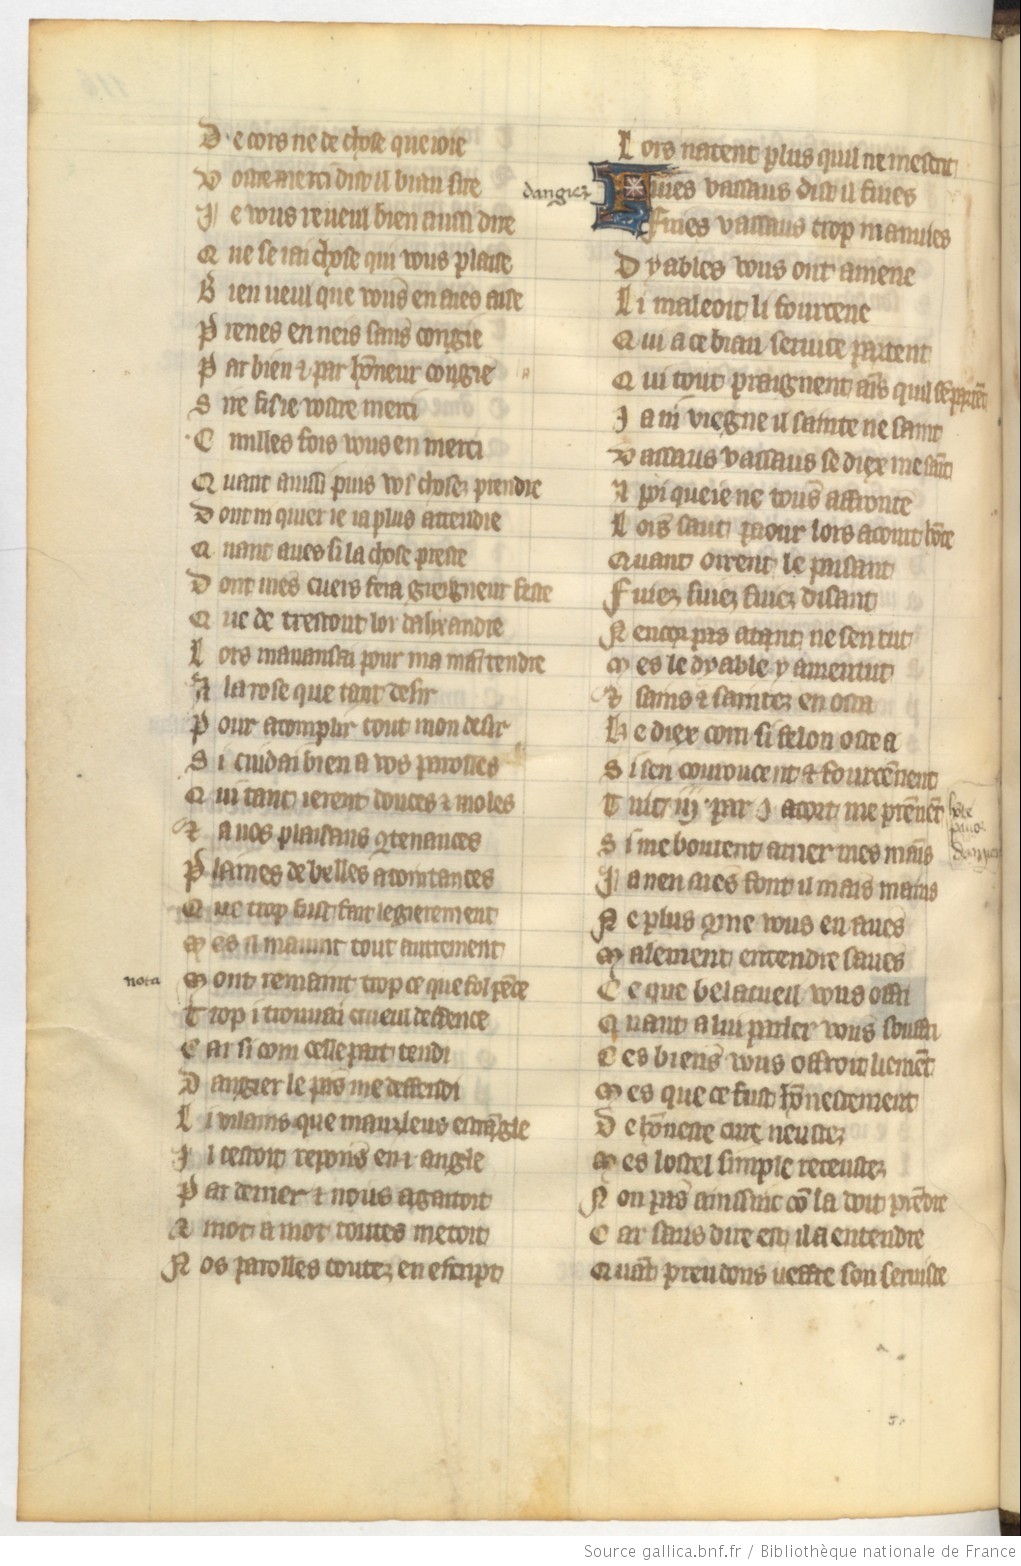 D e cors ne de chose que ioie
V ostre merci dist il biau sire
J e vous reveul bien aussi dire
Q ue se iai chose qui vous plaise
B ien veul que vous en aies aise
P renes en neis sans congie
P ar bien ⁊ par hōneur congie
S ire fis ie vostre merci
C milles fois vous en merci
Q uant ainssi puis vos choses prendre
D ont ni quier ie ia plus attendre
Q uant aves si la chose preste
D ont mes cuers fera greigneur feste
Q ue de trestout lor dalixandre
L ors mavansai pour ma main tendre
A la rose que tant desir
P our acomplir tout mon desir
S i cuidai bien a vos paroles
Q ui tant ierent douces ⁊ moles
⁊ a vos plaisans ꝯtenances
P laines de belles acointances
Q ue trop fust fait legierement
M es il mavint tout autrement
nota
M ont remaint trop ce que fol pēse
T rop i trouvai cruel deffence
C ar si com celle part tendi
D angier le pas me deffendi
L i vilains que maux leus estrāgle
J l cestoit repons en .i. angle
P ar derrier ⁊ nous agaitoit
⁊ mot a mot toutes metoit
N os parolles toutez en escript
L ors natent plus quil ne mescrit
dangiez
F uies vassaus dist il fuies
Fuies vassaus trop manuies
D yables vous ont amene
L i maleoit li fourcene
Q ui a ce biau service partent
Q ui tout praignent ains quil sē partēt
J a ni viegne il sainte ne saint
V assaus vassaus se diex me saint
A poi que ie ne vous affronte
L ors saut paour lors acourt hōte
Quant oirent le paisant
F uiez fuiez fuiez disant
N encor pas atant ne sen tut
M es le dyable y amentut
⁊ sains ⁊ saintez en osta
H e diex com si felon oste a
S i sen couroucent ⁊ fourcēnent
T uit iij par .i. acort me prēnēt
hote
paor
Dangier
S i me boutent arrier mes mais
J a nen aures font il mais mains
N e plus ꝯme vous en aves
M alement entendre saves
C e que bel acueil vous offri
Q uant a lui parler vous souffri
C es biens vous offroit liemēt
M es que ce fust hōnestement
D e hōneste cure neustez
M es loffrel simple receustez
N on pas ainssint cō la doit prēdre
C ar sans dire est il a entendre
Quāt preudons ueffre son servise